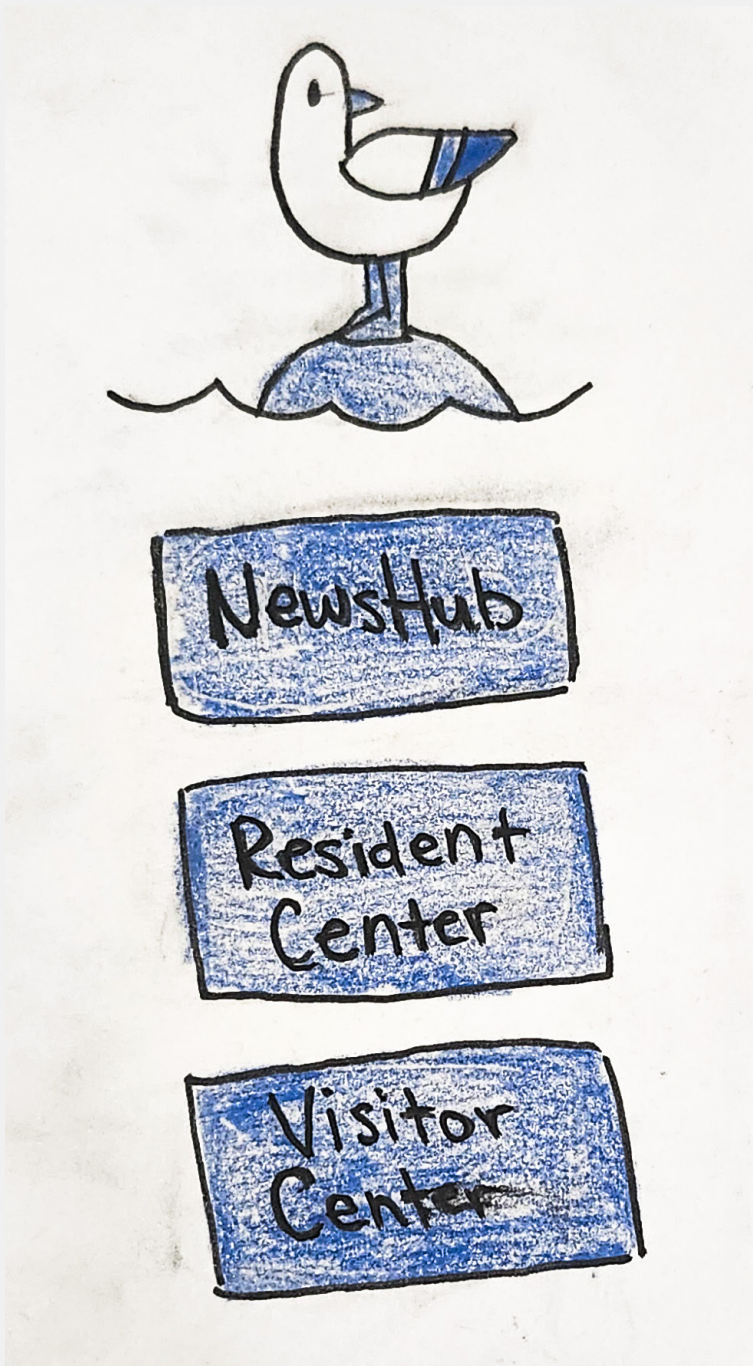 NewsHub
Resident
Center
Visitor
Center